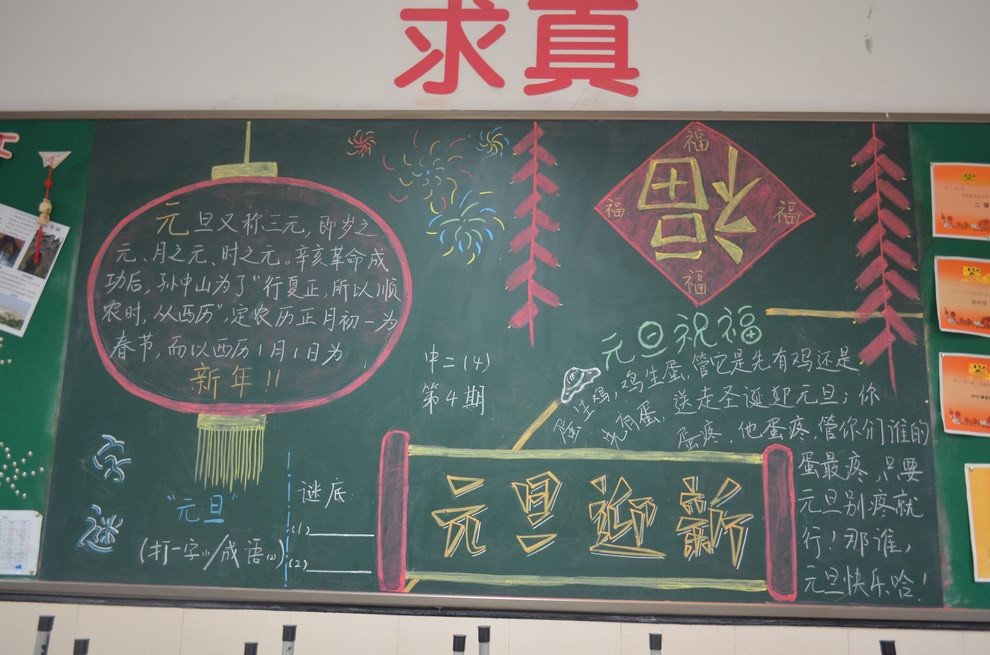 求真
元旦又称三元，即岁之
元、月之元、时之元。辛亥革命成
功后，孙中山为了“行夏正，所以顺
农时，从西历”，定农历正月初一为
春节，而以西历1月1日为
新年！！
福
福
福
福
福
中二（4）
第4期
元旦祝福
蛋生鸡，鸡生蛋，管它是先有鸡还是
先有蛋，送走圣诞迎元旦；你
蛋疼，他蛋疼，管你们谁的
蛋最疼，只要
元旦别疼就
行！那谁，
元旦快乐哈！
元旦迎新
字
谜
“元旦”
（打一字(1)/成语(2)）
谜底：
(1)
(2)